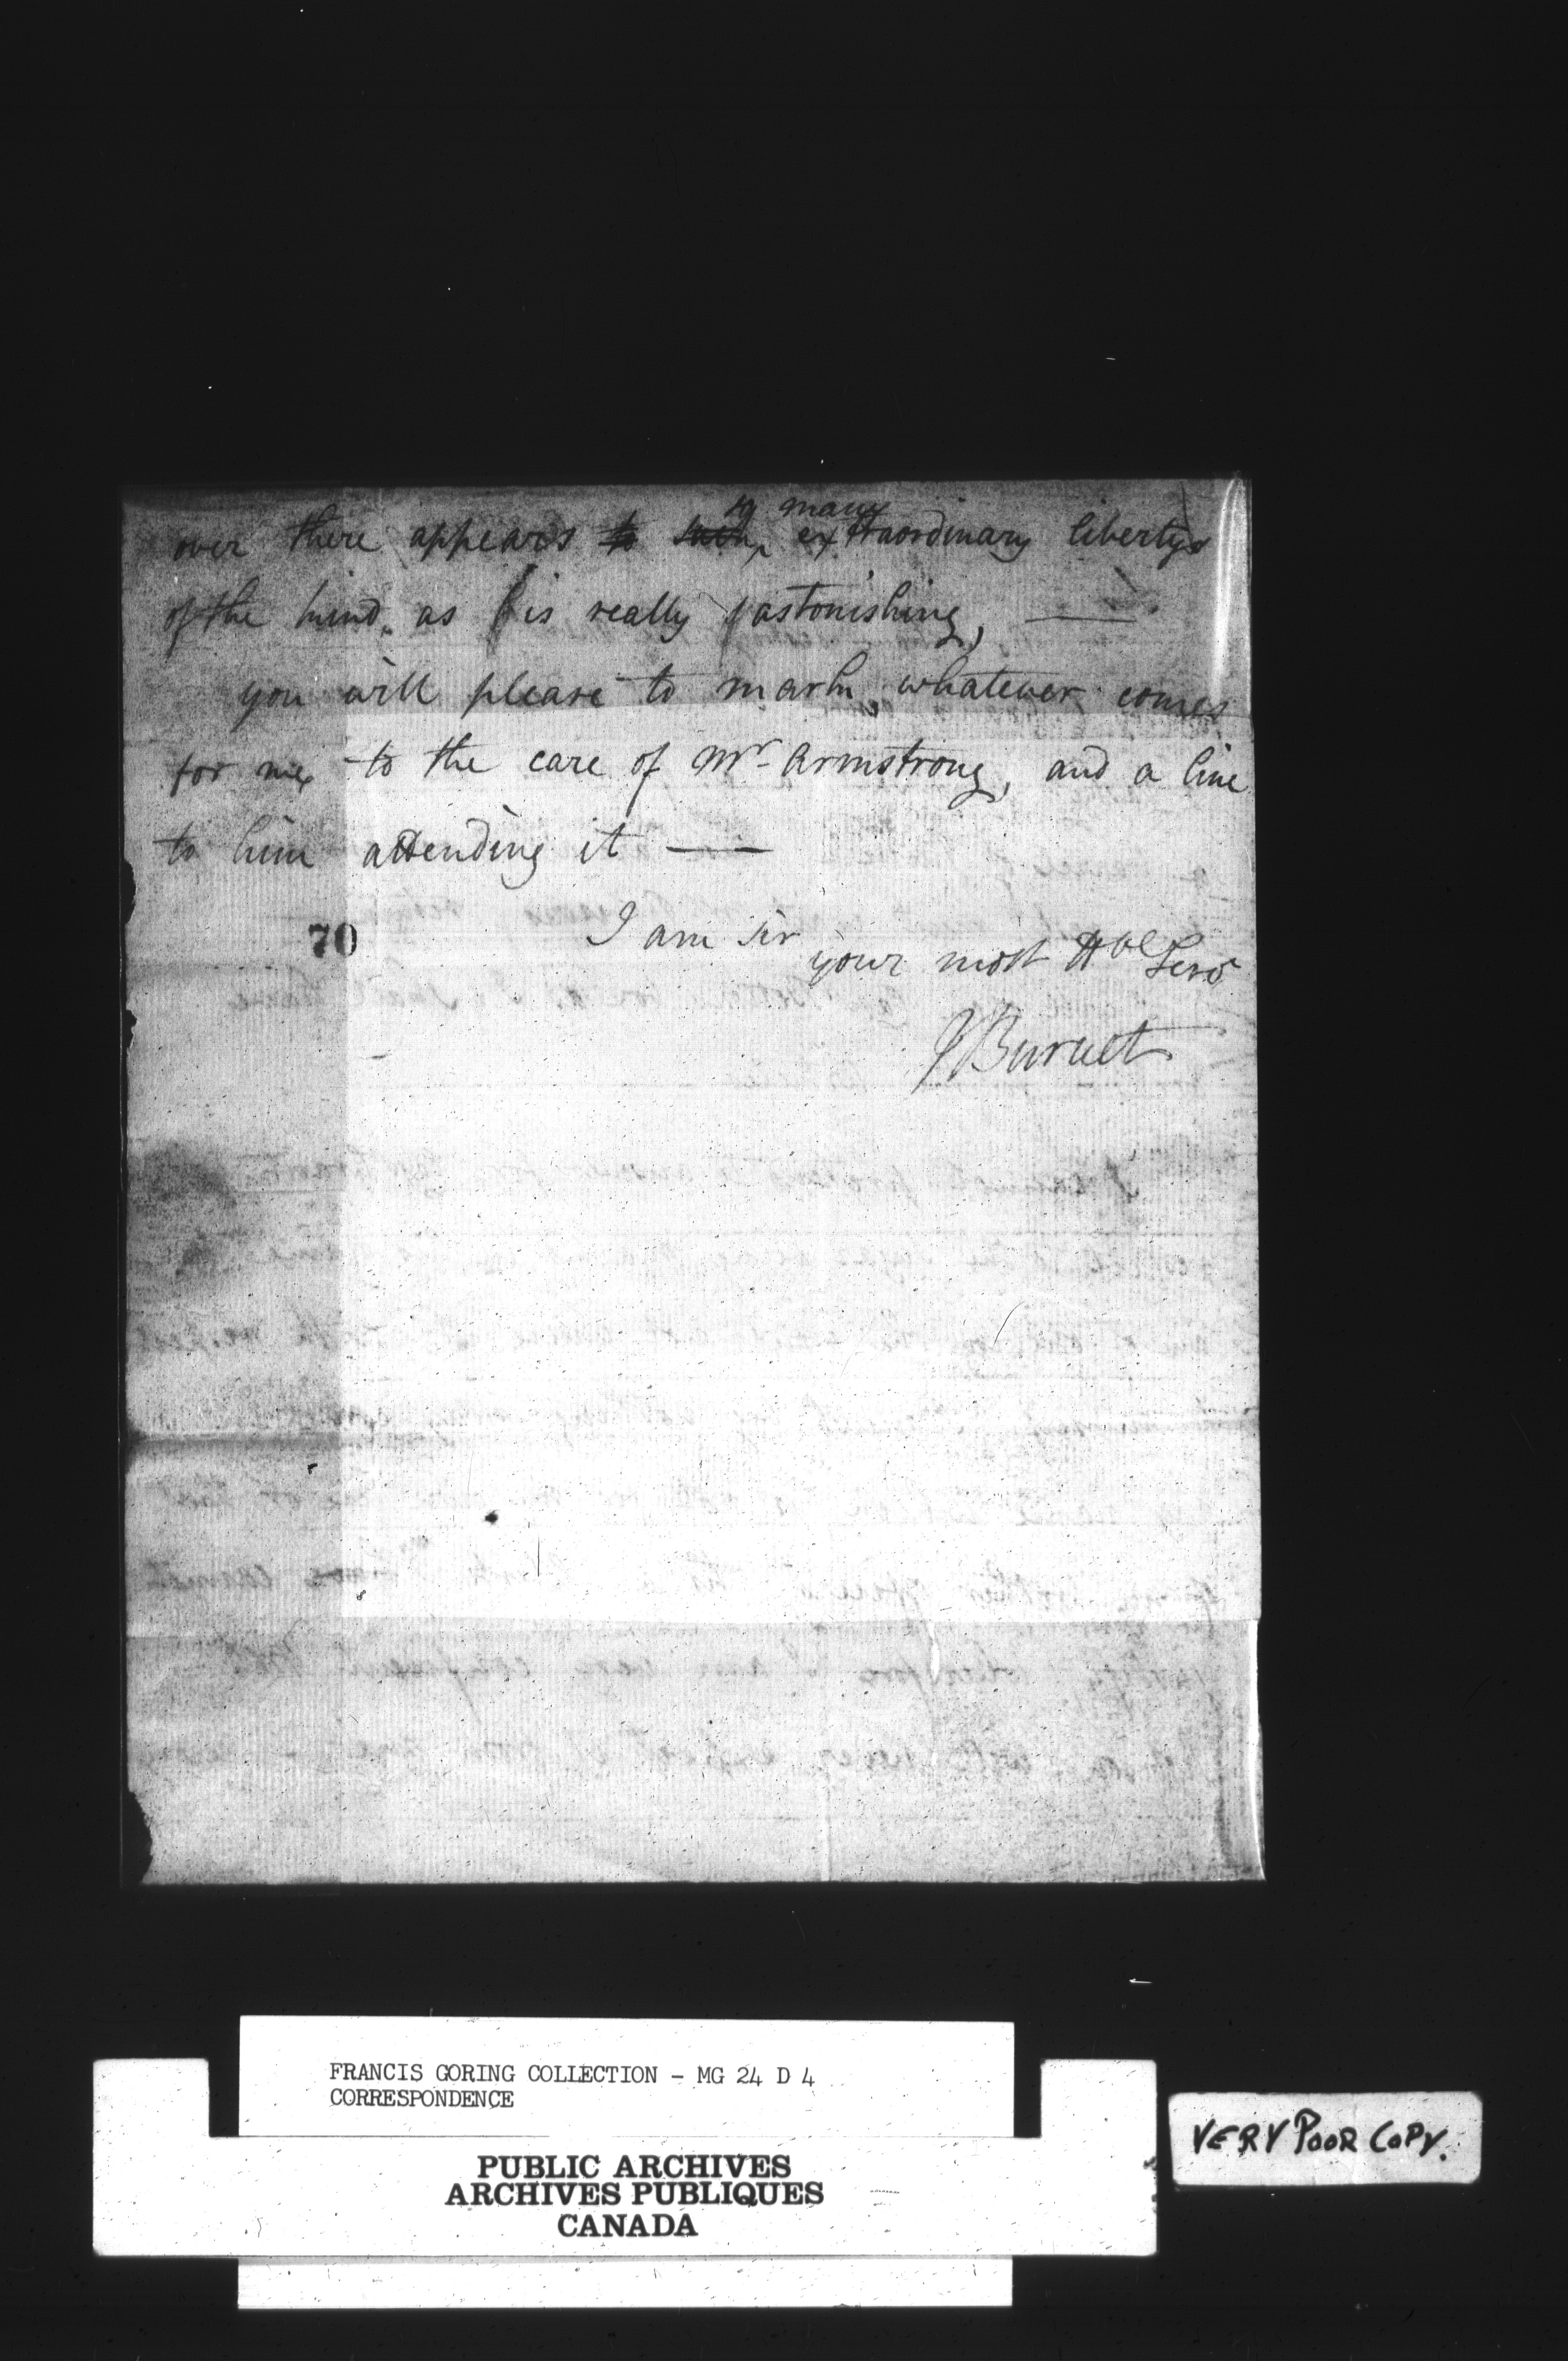 over there appears so many extraordinary libertys
of the kind as is really astonishing, —
you will please to mark whatever comes
for me to the care of Mr Armstrong, and a line
to him attending it —
70
I am Sir
your most Hble Servt
J Burnet
FRANCIS GORING COLLECTION - MG 24 D 4
CORRESPONDENCE
PUBLIC ARCHIVES
ARCHIVES PUBLIQUES
CANADA
VERY POOR COPY.